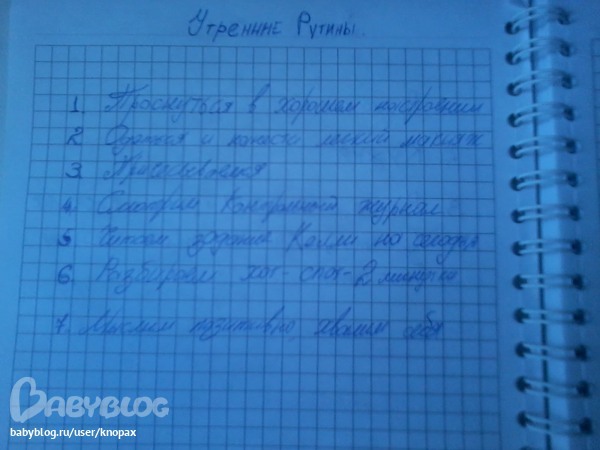 Утренние Рутины..
1. Проснуться в хорошем настроении
2. Одеться и нанести легкий макияж
3. Прислушаемся
4. Смотрим Контрольный журнал.
5. Читаем задание Келли на сегодня
6. Разбираем хот-спот-2 минутки
7. Мыслим позитивно, хвалим себя
BABYBLOG
babyblog.ru/user/knopax